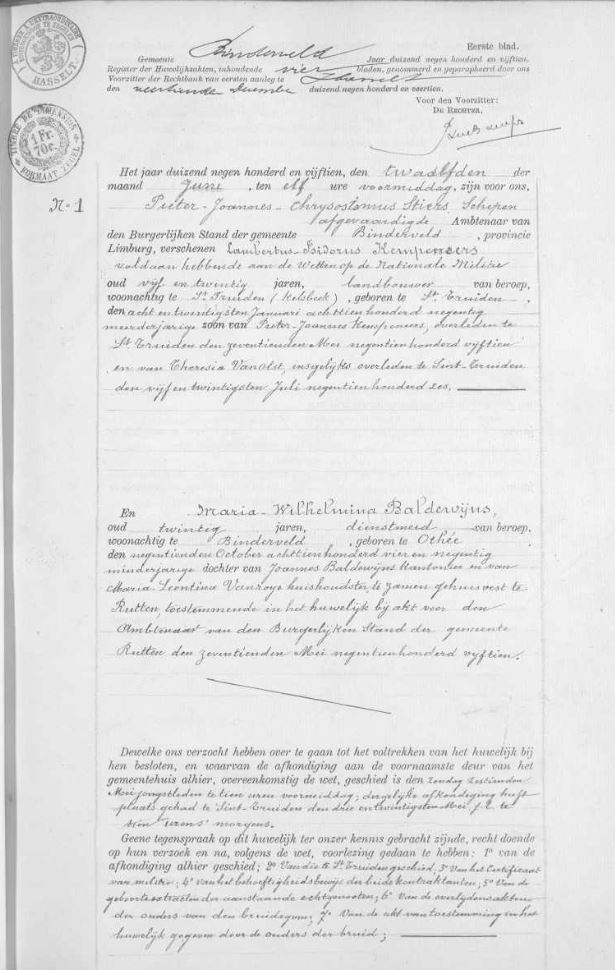 Eerste blad.
Gemeente Binderveld Jaar duizend negen honderd en vijftien.
Register der Huwelijksakten, inhoudende vier bladen, genommerd en geparapheerd door ons
Voorzitter der Rechtbank van eersten aanleg te Hasselt
den duizend negen honderd en veertien.
Voor den Voorzitter:
De Rechter,
HASSELT.
TIMBRE DE DIMENSION
1 Fr. 70c.
N. 1
Het jaar duizend negen honderd en vijftien, den twaalfden der
maand Juni, ten elf ure voormiddag, zijn voor ons,
Pieter-Joannes-Chrysostomus Stiers Schepen
afgevaardigde Ambtenaar van
den Burgerlijken Stand der gemeente Binderveld, provincie
Limburg, verschenen Lambertus-Isidorus Kempeneers
voldaan hebbende aan de Wetten op de Nationale Militie
oud vijf en twintig jaren, landbouwer van beroep,
woonachtig te St Truiden (Melsbeek), geboren te St Truiden,
den acht en twintigsten Januari achttien honderd negentig
meerderjarige zoon van Pieter-Joannes Kempeneers, overleden te
St Truiden den zeventienden Mei negentienhonderd vijftien
en van Theresia Vanolst, insgelijks overleden te Sint-Truiden
den vijf en twintigsten Juli negentienhonderd zes.
En Maria-Wilhelmina Baldewijns,
oud twintig jaren, dienstmeid van beroep,
woonachtig te Binderveld, geboren te Othée
den negentienden October achttienhonderd vier en negentig
minderjarige dochter van Joannes Baldewijns Kantonnier en van
Maria Leontina Vanroye huishoudster, te zamen gehuisvest te
Rutten, toestemmende in het huwelijk bij akt voor den
Ambtenaar van den Burgerlijken Stand der gemeente
Rutten den zeventienden Mei negentienhonderd vijftien.
Dewelke ons verzocht hebben over te gaan tot het voltrekken van het huwelijk bij
hen besloten, en waarvan de afkondiging aan de voornaamste deur van het
gemeentehuis alhier, overeenkomstig de wet, geschied is den zondag zestienden
Mei jongstleden te tien uren voormiddag; dergelijke afkondiging heeft
plaats gehad te Sint-Truiden den drie en twintigsten Mei j.l. te
tien uren 's morgens.
Geene tegenspraak op dit huwelijk ter onzer kennis gebracht zijnde, recht doende
op hun verzoek en na, volgens de wet, voorlezing gedaan te hebben: 1° van de
afkondiging alhier geschied; 2° Van die te St Truiden geschied, 3° Van het Certificaat
van militie; 4° van het behoeftigheidsbewijs der beide kontraktanten; 5° Van de
geboorteextracten der aanstaande echtgenooten; 6° Van de overlijdensakten
der ouders van den bruidegom; 7° Van de akt van toestemming in het
huwelijk gegeven door de ouders der bruid;